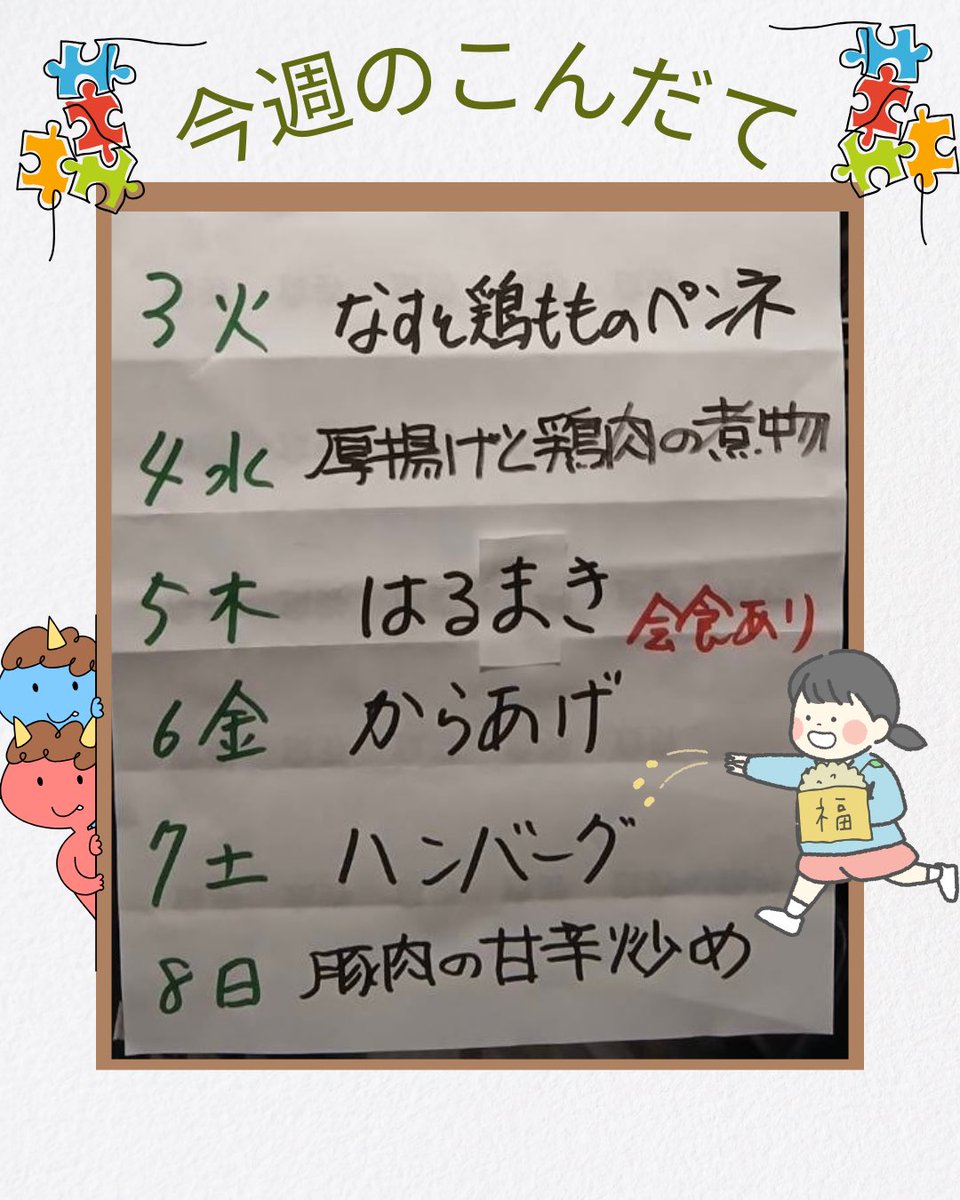 今週のこんだて
3 火 なすと鶏もものペンネ
4 水 厚揚げと鶏肉の煮物
5 木 はるまき 会食あり
6 金 からあげ
7 土 ハンバーグ
福
8 日 豚肉の甘辛炒め